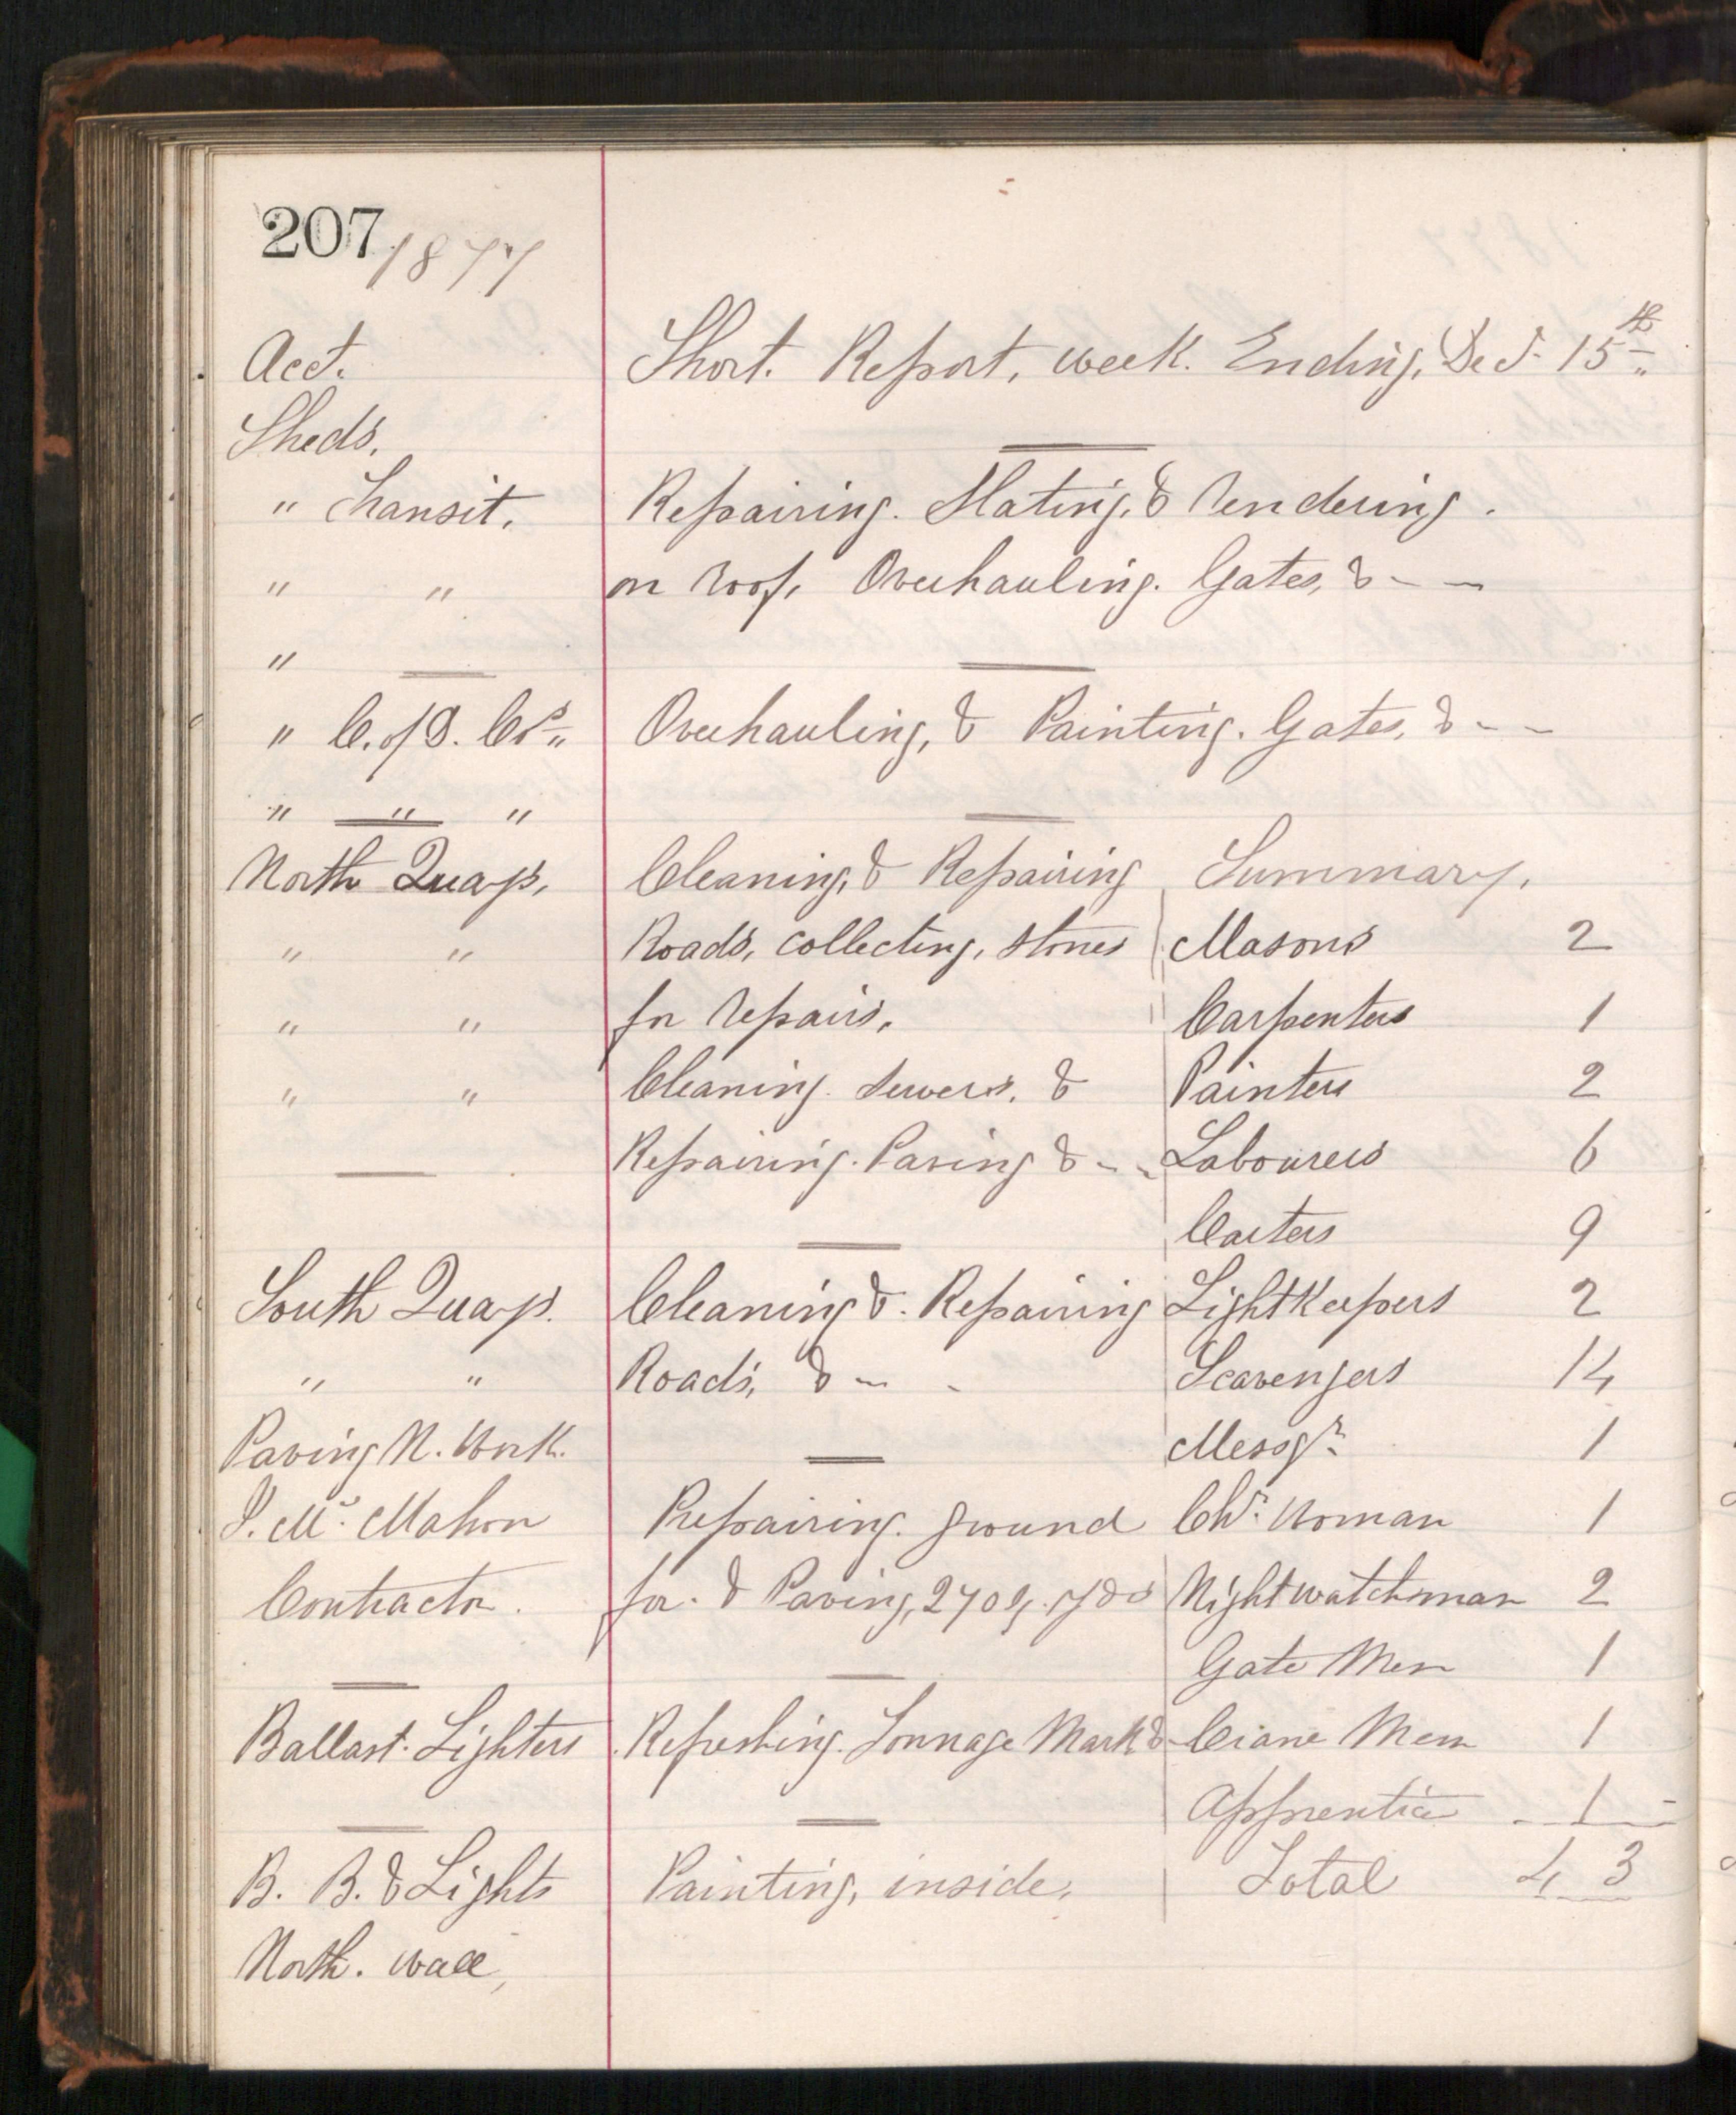 207 1877
Acct. Short. Report, week. Ending, Dec. 15th
Sheds.
" Transit. Repairing. Slating, & Rendering.
" " on Roof, Overhauling. Gates, & - -
"
" C. of D. Co. Overhauling, & Painting. Gates, & - -
" " "
North Quays, Cleaning, & Repairing Summary.
" " Roads, collecting, stones Masons 2
" " for Repairs. Carpenters 1
" " Cleaning. Sewers, & Painters 2
Repairing. Paving & - - Labourers 6
Carters 9
South Quays. Cleaning & Repairing LightKeepers 2
" " Roads, & - - Scavengers 14
Paving N. Work. Messgr 1
Mc. Mahon Repairing ground Chr. Woman 1
Contractor. for. & Paving, 270 yds Night watchman 2
Gate Men 1
Ballast. Lighters Refreshing. Tonnage Mark & Crane Men 1
Apprentice 1
B. B. & Lights Painting, inside, Total 43
North. Wall,